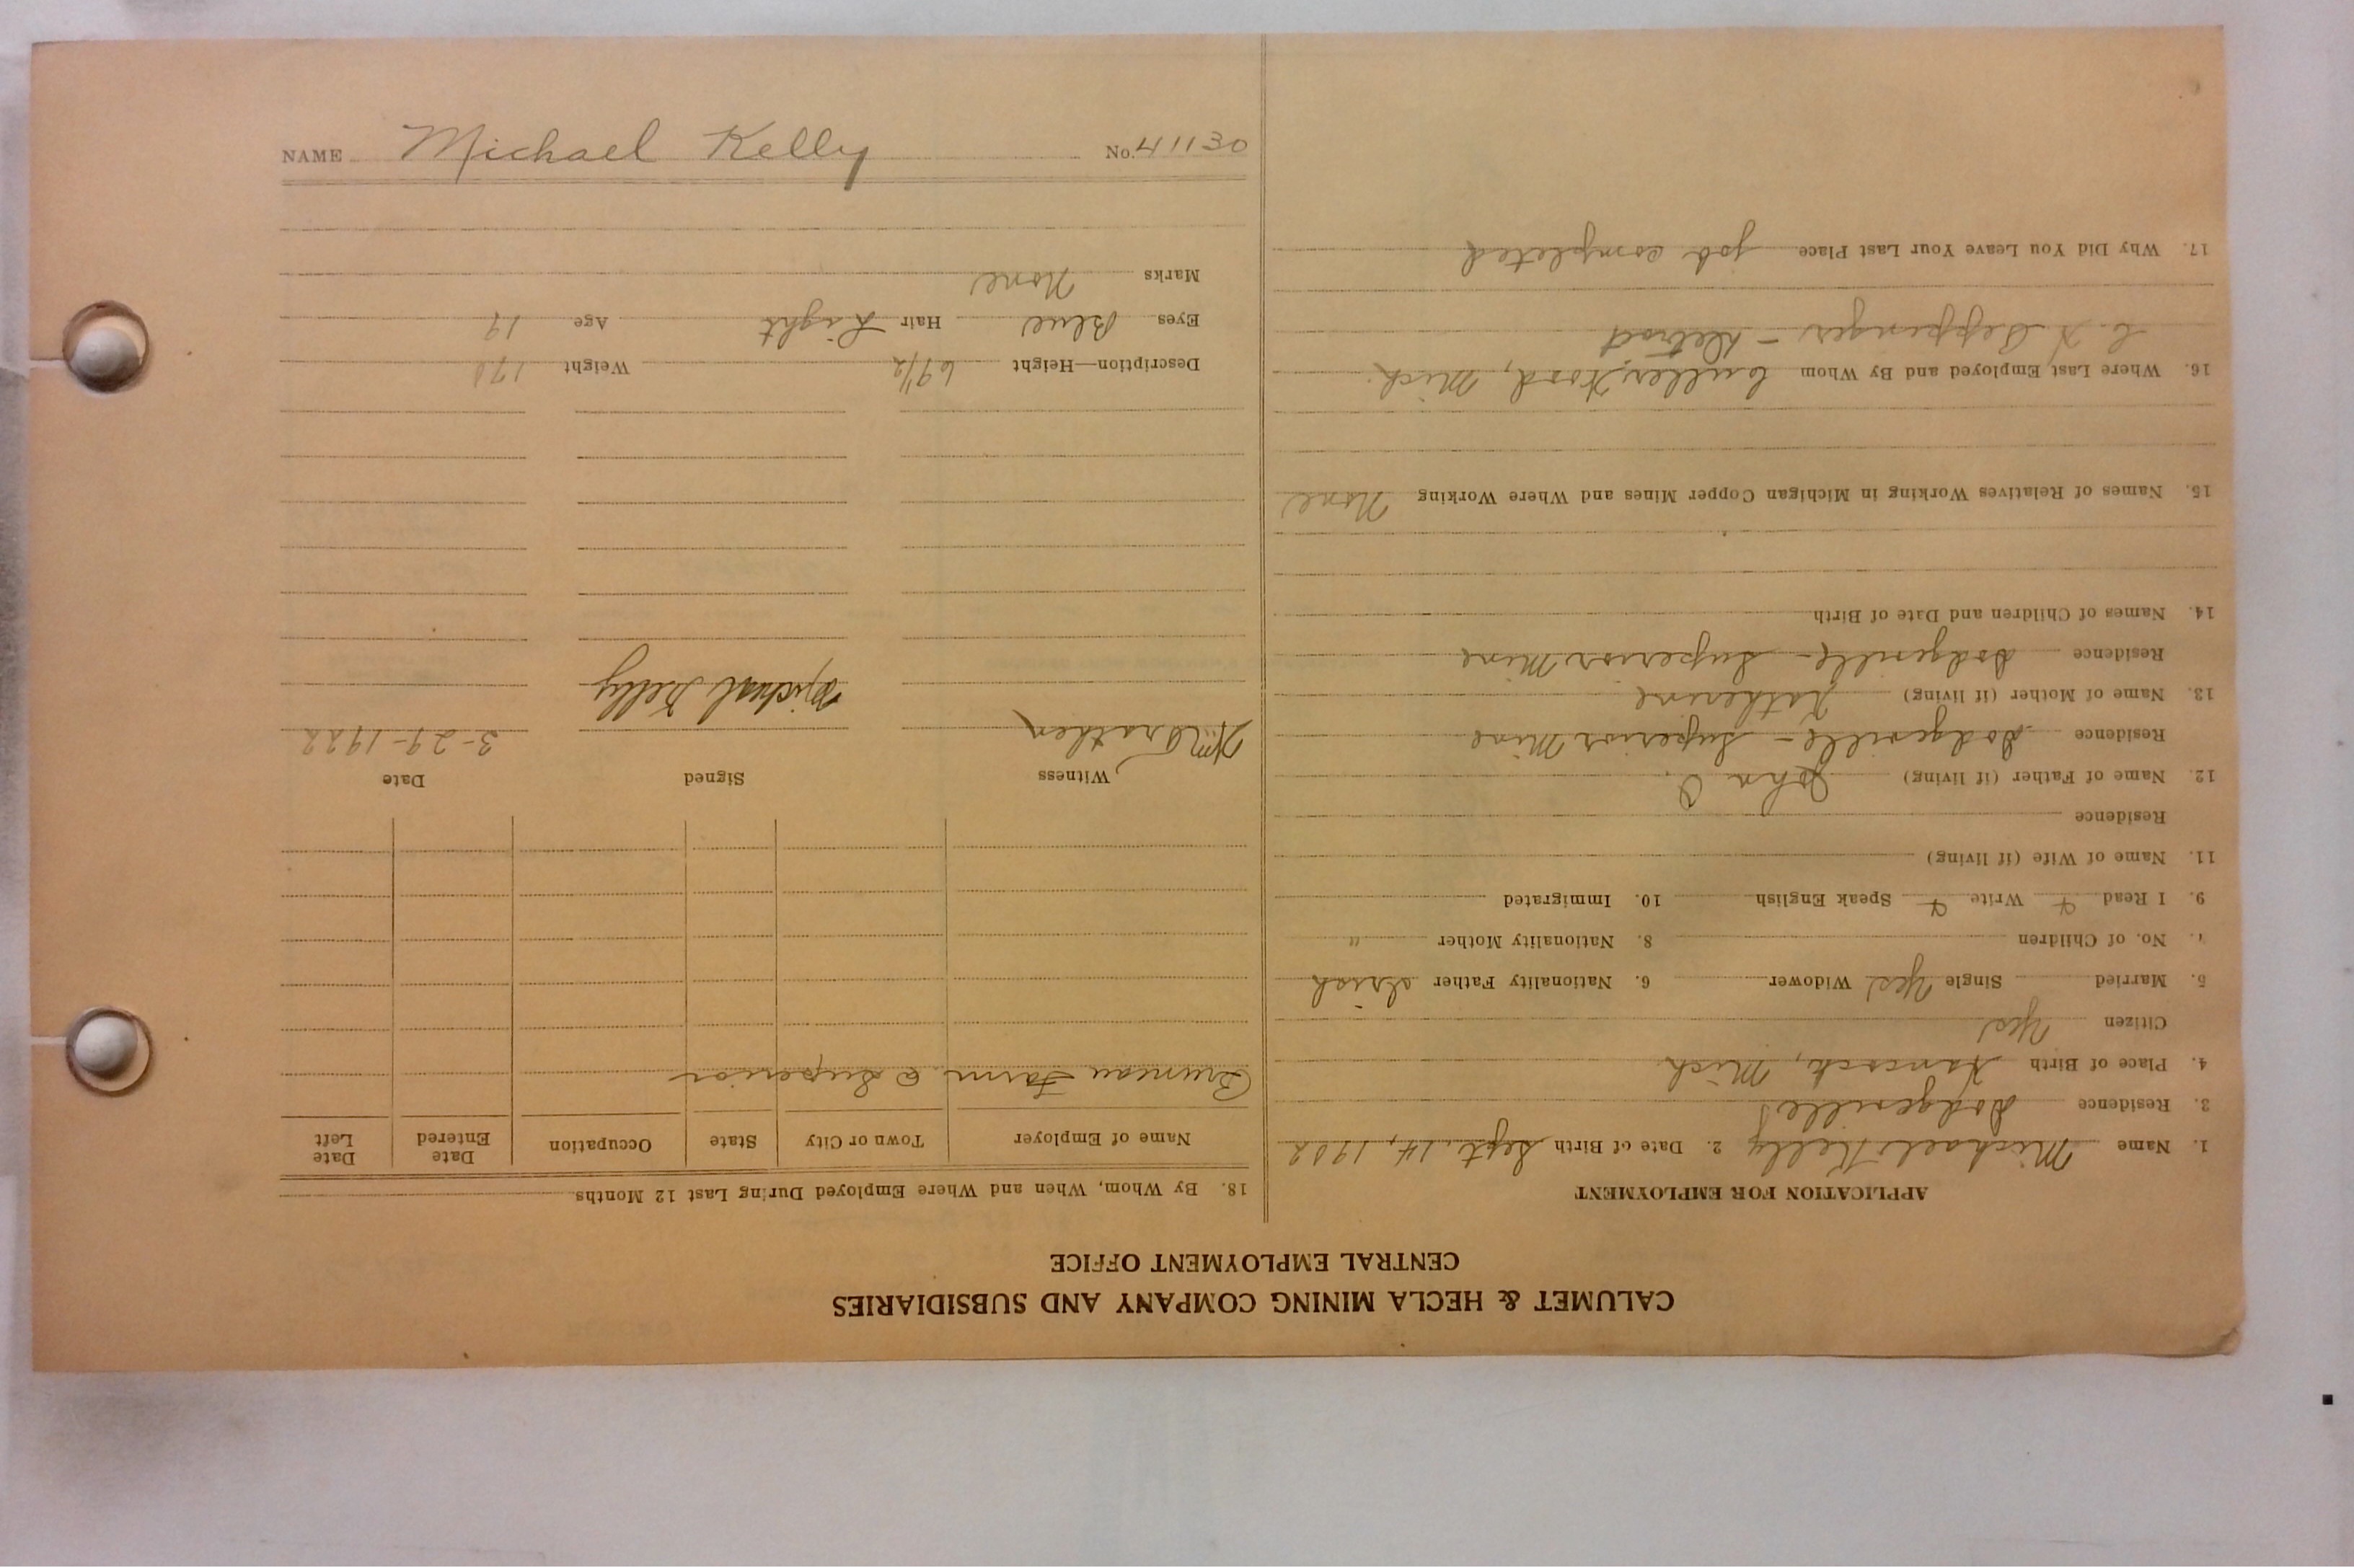 CALUMET & HECLA MINING COMPANY AND SUBSIDIARIES
CENTRAL EMPLOYMENT OFFICE
APPLICATION FOR EMPLOYMENT
1. Name Michael Kelly 2. Date of Birth Sept. 14, 1902
3. Residence Dodgeville
4. Place of Birth Hancock, Mich
Citizen Yes
5. Married Single Yes Widower 6. Nationality Father Irish
7. No. of Children 8. Nationality Mother "
9. I Read Write Speak English 10. Immigrated
11. Name of Wife (if living)
Residence
12. Name of Father (if living) John O.
Residence Dodgeville - Superior Mine
13. Name of Mother (if living) Katherine
Residence Dodgeville - Superior Mine
14. Names of Children and Date of Birth
15. Names of Relatives Working in Michigan Copper Mines and Where Working None
16. Where Last Employed and By Whom Mich.
C. H. - Detroit
17. Why Did You Leave Your Last Place job completed
18. By Whom, When and Where Employed During Last 12 Months
Name of Employer Town or City State Occupation Date Entered Date Left
Bruneau Farm @ Superior
Witness Signed Date
Wm 3-29-1922
Michael Kelly
Description—Height 69 1/2 Weight
Eyes Blue Hair Light Age 19
Marks None
NAME Michael Kelly No. 41130